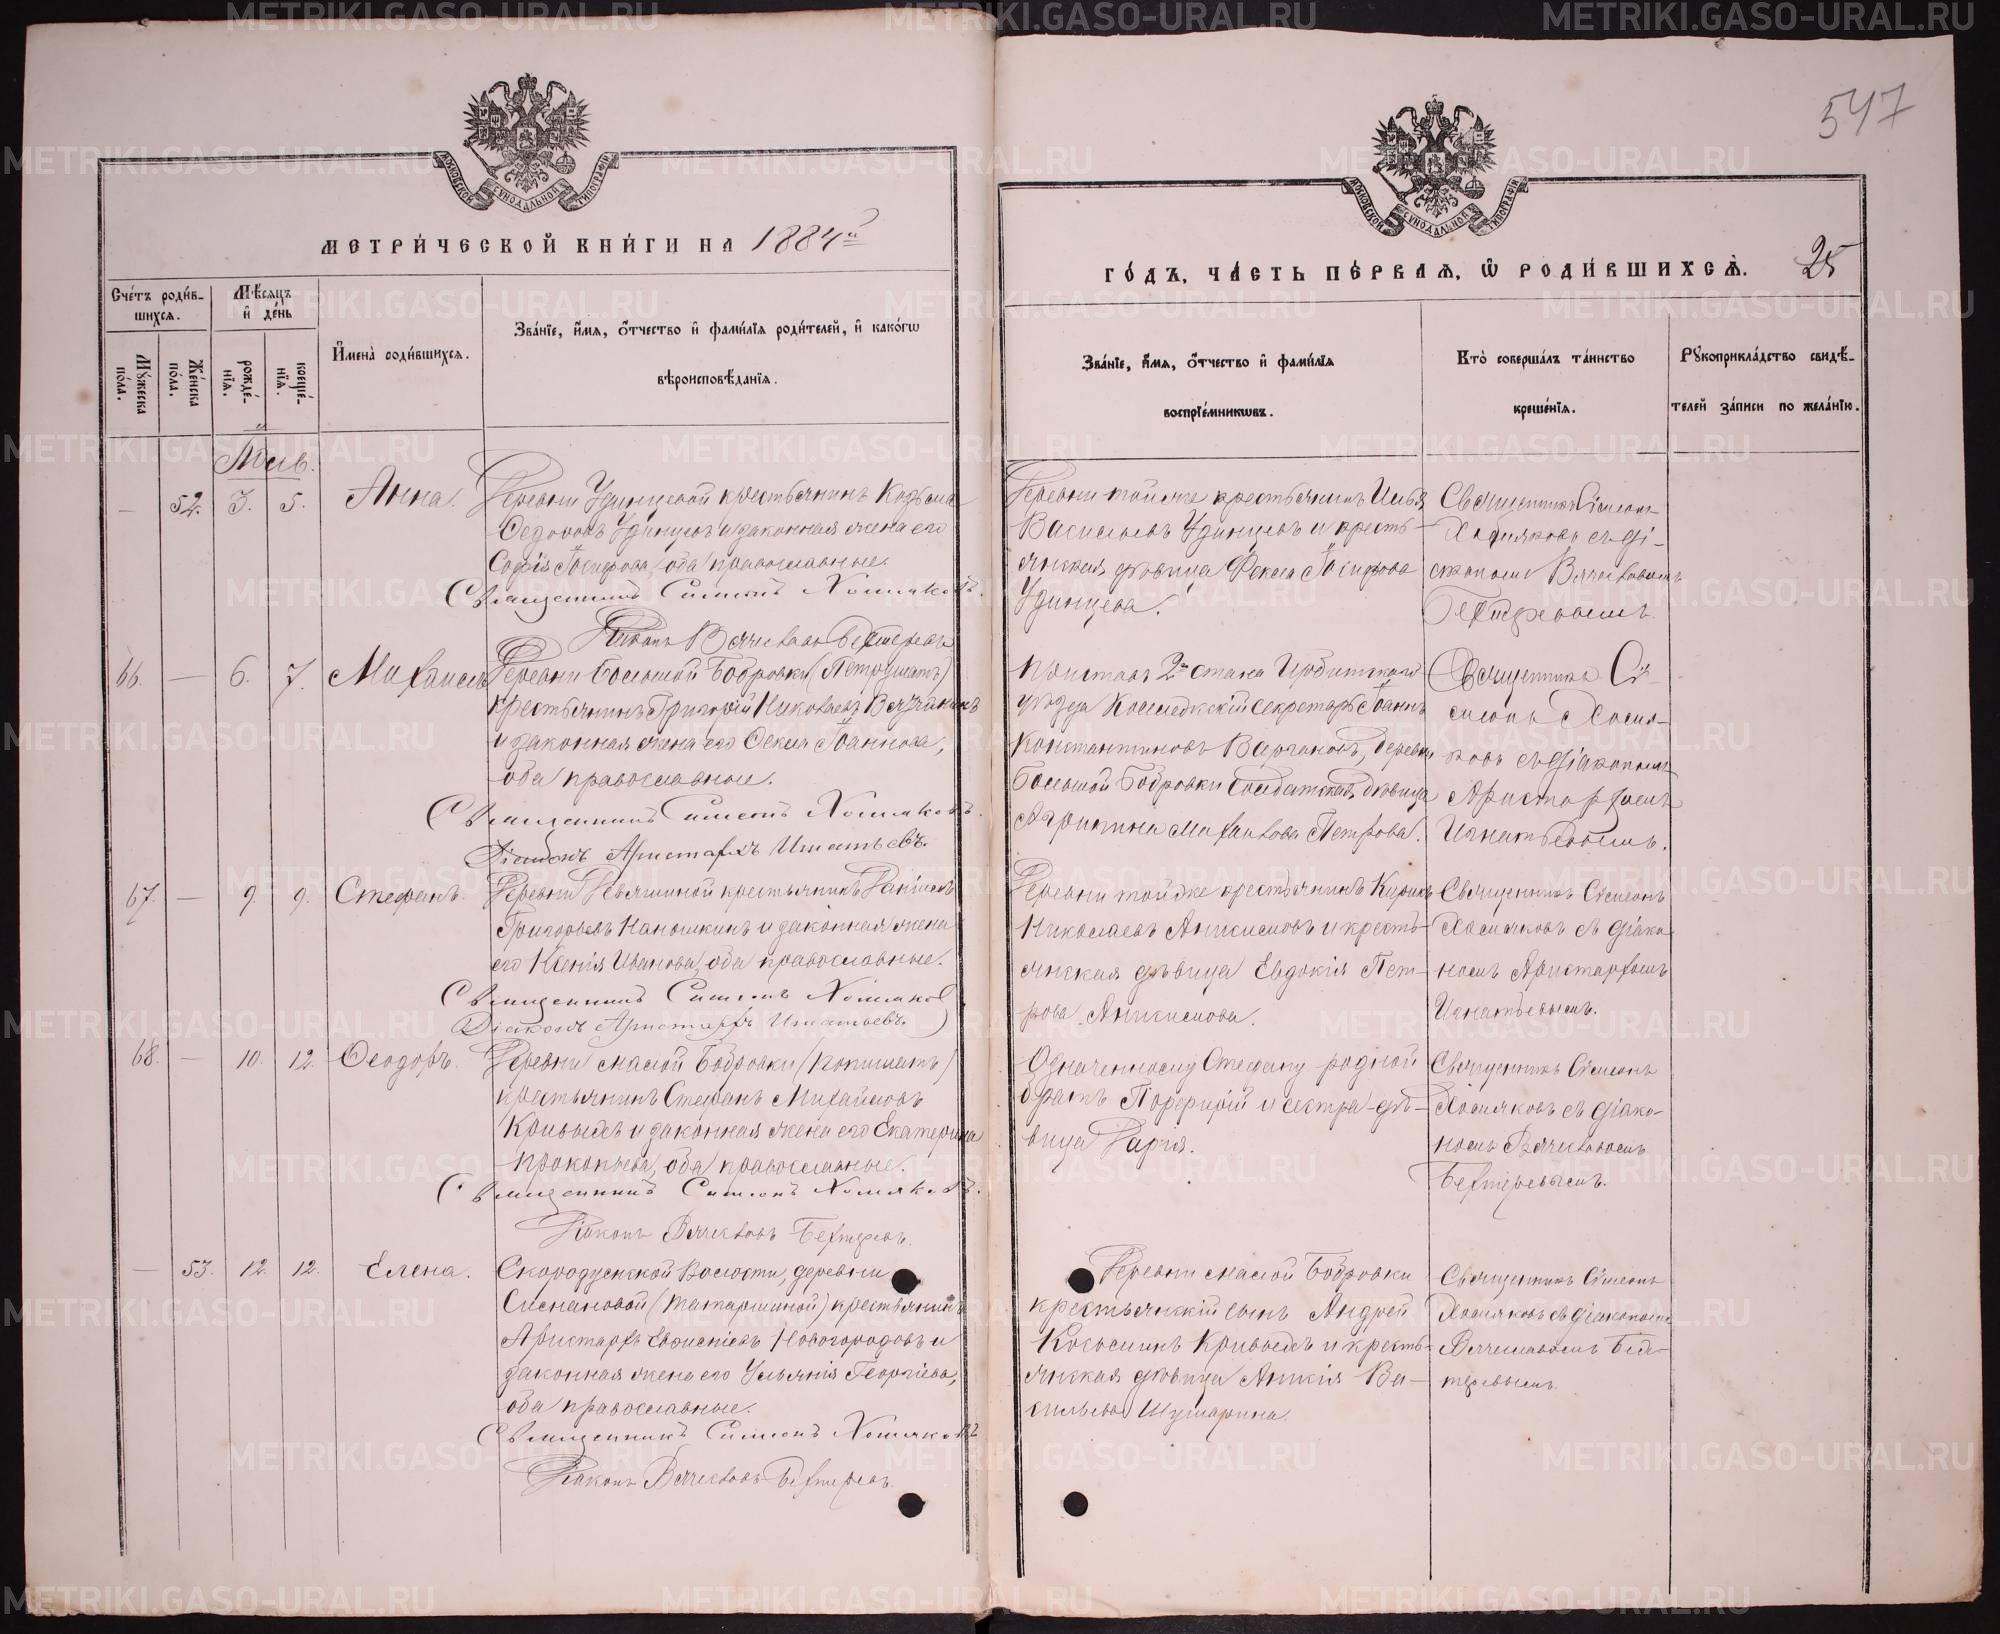 547
МОСКОВСКОЙ СѴНОДАЛЬНОЙ ТИПОГРАФІИ
МОСКОВСКОЙ СѴНОДАЛЬНОЙ ТИПОГРАФІИ
МЕТРИ́ЧЕСКОЙ КНИ́ГИ НА 1884й
ГО́ДЪ, ЧА́СТЬ ПЕ́РВАЯ, Ѡ҆ РОДИ́ВШИХСѦ̀. 25
Сче́тъ роди́в-
шихся.
Мꙋ́жеска по́ла.
Же́нска по́ла.
Мѣ́сяцъ и҆ де́нь
рожде́-
нїя.
креще́-
нїя.
И҆мена̀ роди́вшихся.
Зва́нїе, и҆́мя, ѻ҆́тчество и҆ фами́лїя роди́телей, и҆ како́гѡ
вѣроисповѣ́данїя.
Зва́нїе, и҆́мя, ѻ҆́тчество и҆ фами́лїя
воспрїе́мникѡвъ.
Кто̀ соверша́лъ та́инство
креще́нїя.
Рꙋкоприкла́дство свидѣ́-
телей за́писи по жела́нїю.
Май.
— 52. 3. 5. Анна.
Деревни Удинцевой крестьянинъ Козьма
Удинцевъ и законная жена его
Софія Іосифова, оба православные.
Священникъ Симеонъ Хомяковъ.
Діаконъ Вячеславъ Бехтеревъ
Деревни той же крестьянинъ Илья
Васильевъ Удинцевъ и кресть-
янская дѣвица Фекла Іосифова
Удинцева.
Священникъ Симеонъ
Хомяковъ съ ді-
акономъ Вячеславомъ
Бехтеревымъ.
66. — 6. 7. Михаилъ
Деревни Большой Бобровки (Петрушатъ)
крестьянинъ Григорій Николаевъ
и законная жена его Іоаннова,
оба православные.
Священникъ Симеонъ Хомяковъ.
Діаконъ Аристархъ Игнатьевъ.
Приставъ 2го стана Ирбитскаго
уѣзда Коллежскій секретарь Іоаннъ
Константиновъ Варгановъ, деревни
Большой Бобровки солдатская дѣвица
Агрипина Михаилова Петрова.
Священникъ Си-
меонъ Хомя-
ковъ съ діакономъ
Аристархомъ
Игнатьевымъ.
67. — 9. 9. Стефанъ.
Деревни крестьянинъ Даніилъ
Григорьевъ и законная жена
его Ксенія Иванова, оба православные.
Священникъ Симеонъ Хомяков
Діаконъ Аристархъ Игнатьевъ.
Деревни той же крестьянинъ Кирикъ
Николаевъ Аникисмовъ и кресть-
янская дѣвица Евдокія Пет-
рова Аникисмова.
Священникъ Симеонъ
Хомяковъ съ діако-
номъ Аристархомъ
Игнатьевымъ.
68. — 10. 12. Ѳеодоръ.
Деревни малой Бобровки (Копышатъ)
крестьянинъ Стефанъ Михайловъ
Кривыхъ и законная жена его Екатерина
Прокопьева, оба православные.
Священникъ Симеонъ Хомяковъ.
Діаконъ Вячеславъ Бехтеревъ.
Означенному Стефану родной
братъ Порфирій и сестра-дѣ-
вица Дарія.
Священникъ Симеонъ
Хомяковъ съ діако-
номъ Вячеславомъ
Бехтеревымъ.
— 53. 12. 12. Елена.
Скородумской Волости, деревни
крестьянинъ
Аристархъ Новгородовъ и
законная жена его Ульянія Георгіева,
оба православные.
Священникъ Симеонъ Хомяковъ
Діаконъ Вячеславъ Бехтеревъ.
Деревни малой Бобровки
крестьянскій сынъ Андрей
Косьминъ Кривыхъ и кресть-
янская дѣвица Ва-
сильева Шушарина.
Священникъ Симеонъ
Хомяковъ съ діакономъ
Вячеславомъ Бех-
теревымъ.
METRIKI.GASO-URAL.RU